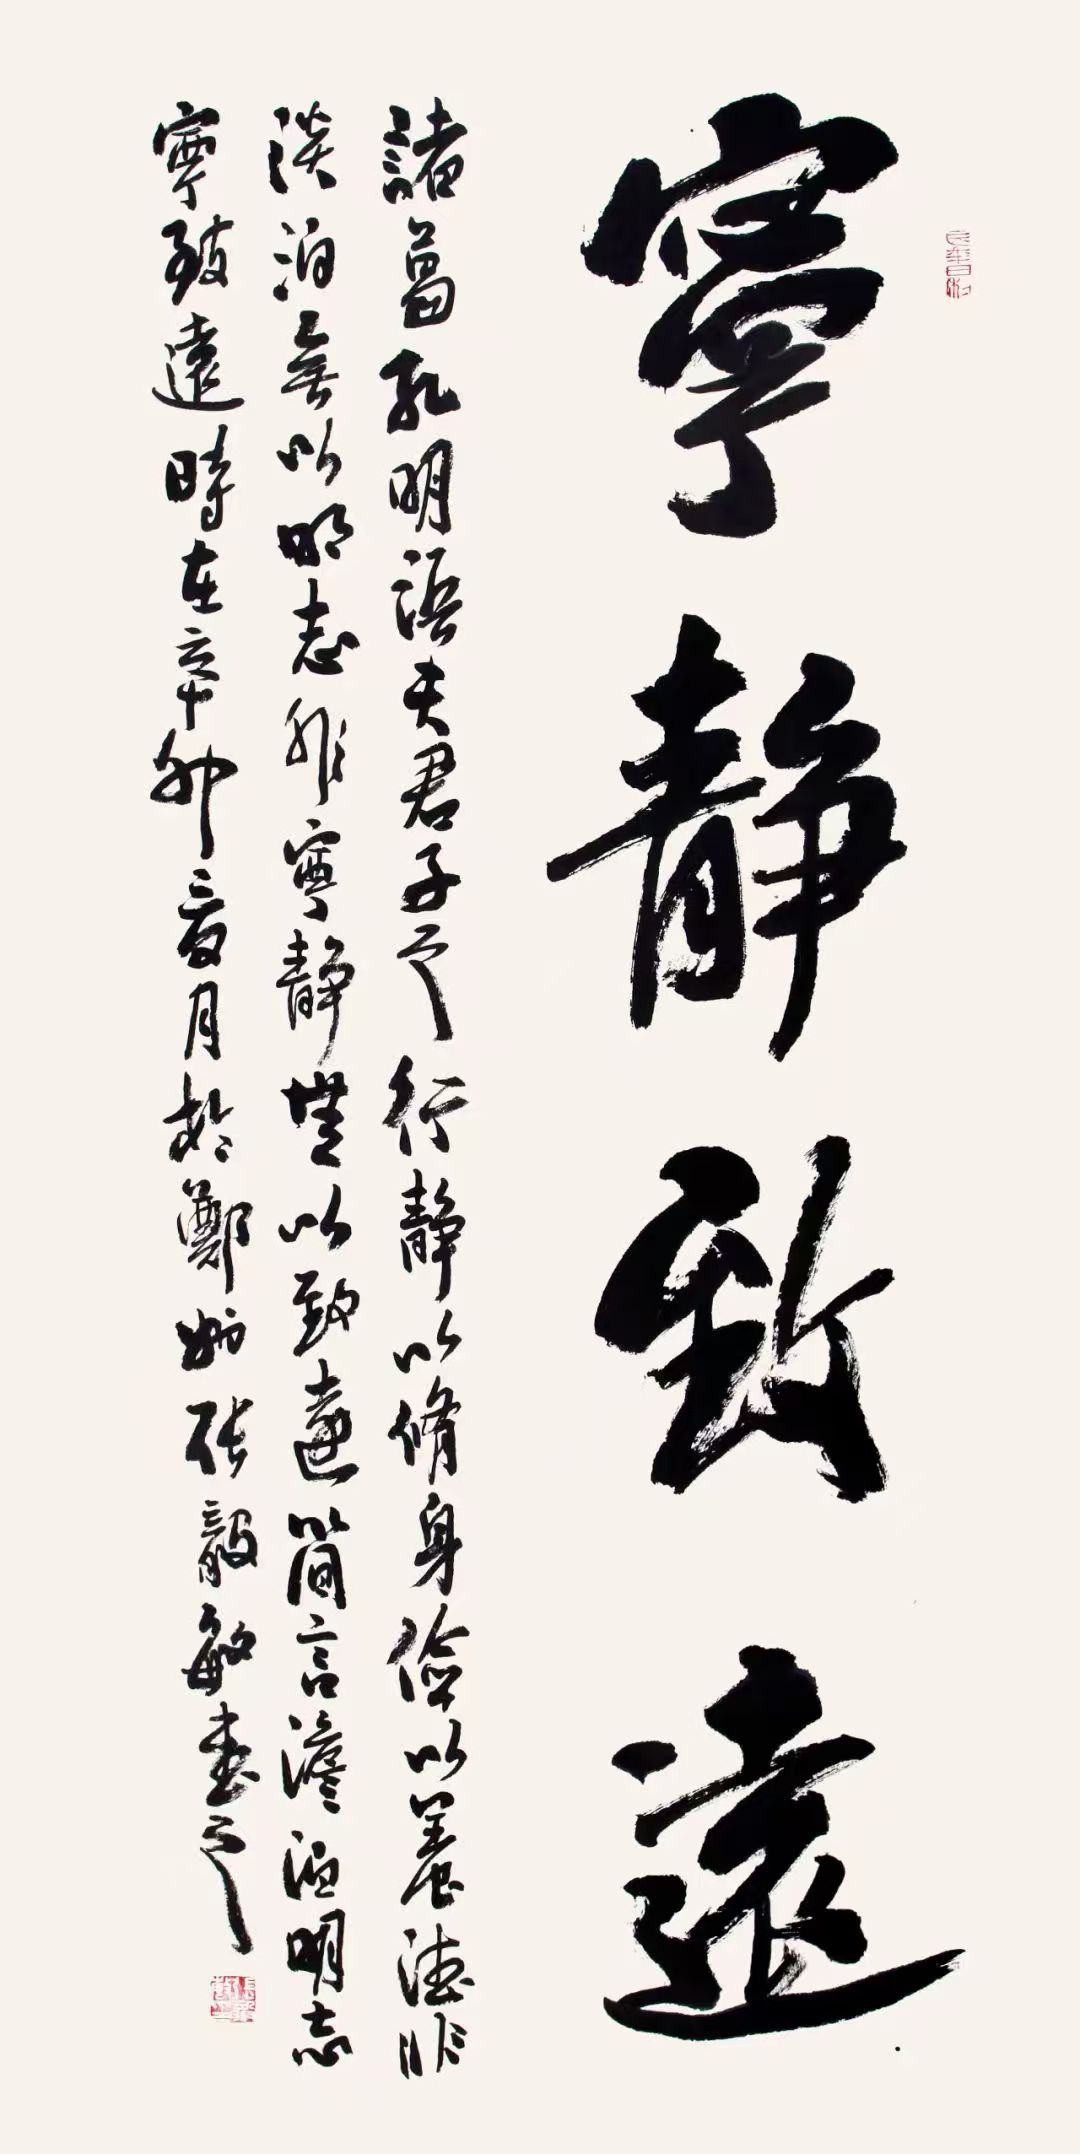 寧靜致遠
諸葛孔明語夫君子之行靜以脩身儉以養德非
淡泊無以明志非寧靜無以致遠簡言澹泊明志
寧致遠時在辛卯夏月於鄭州張毅敏書之